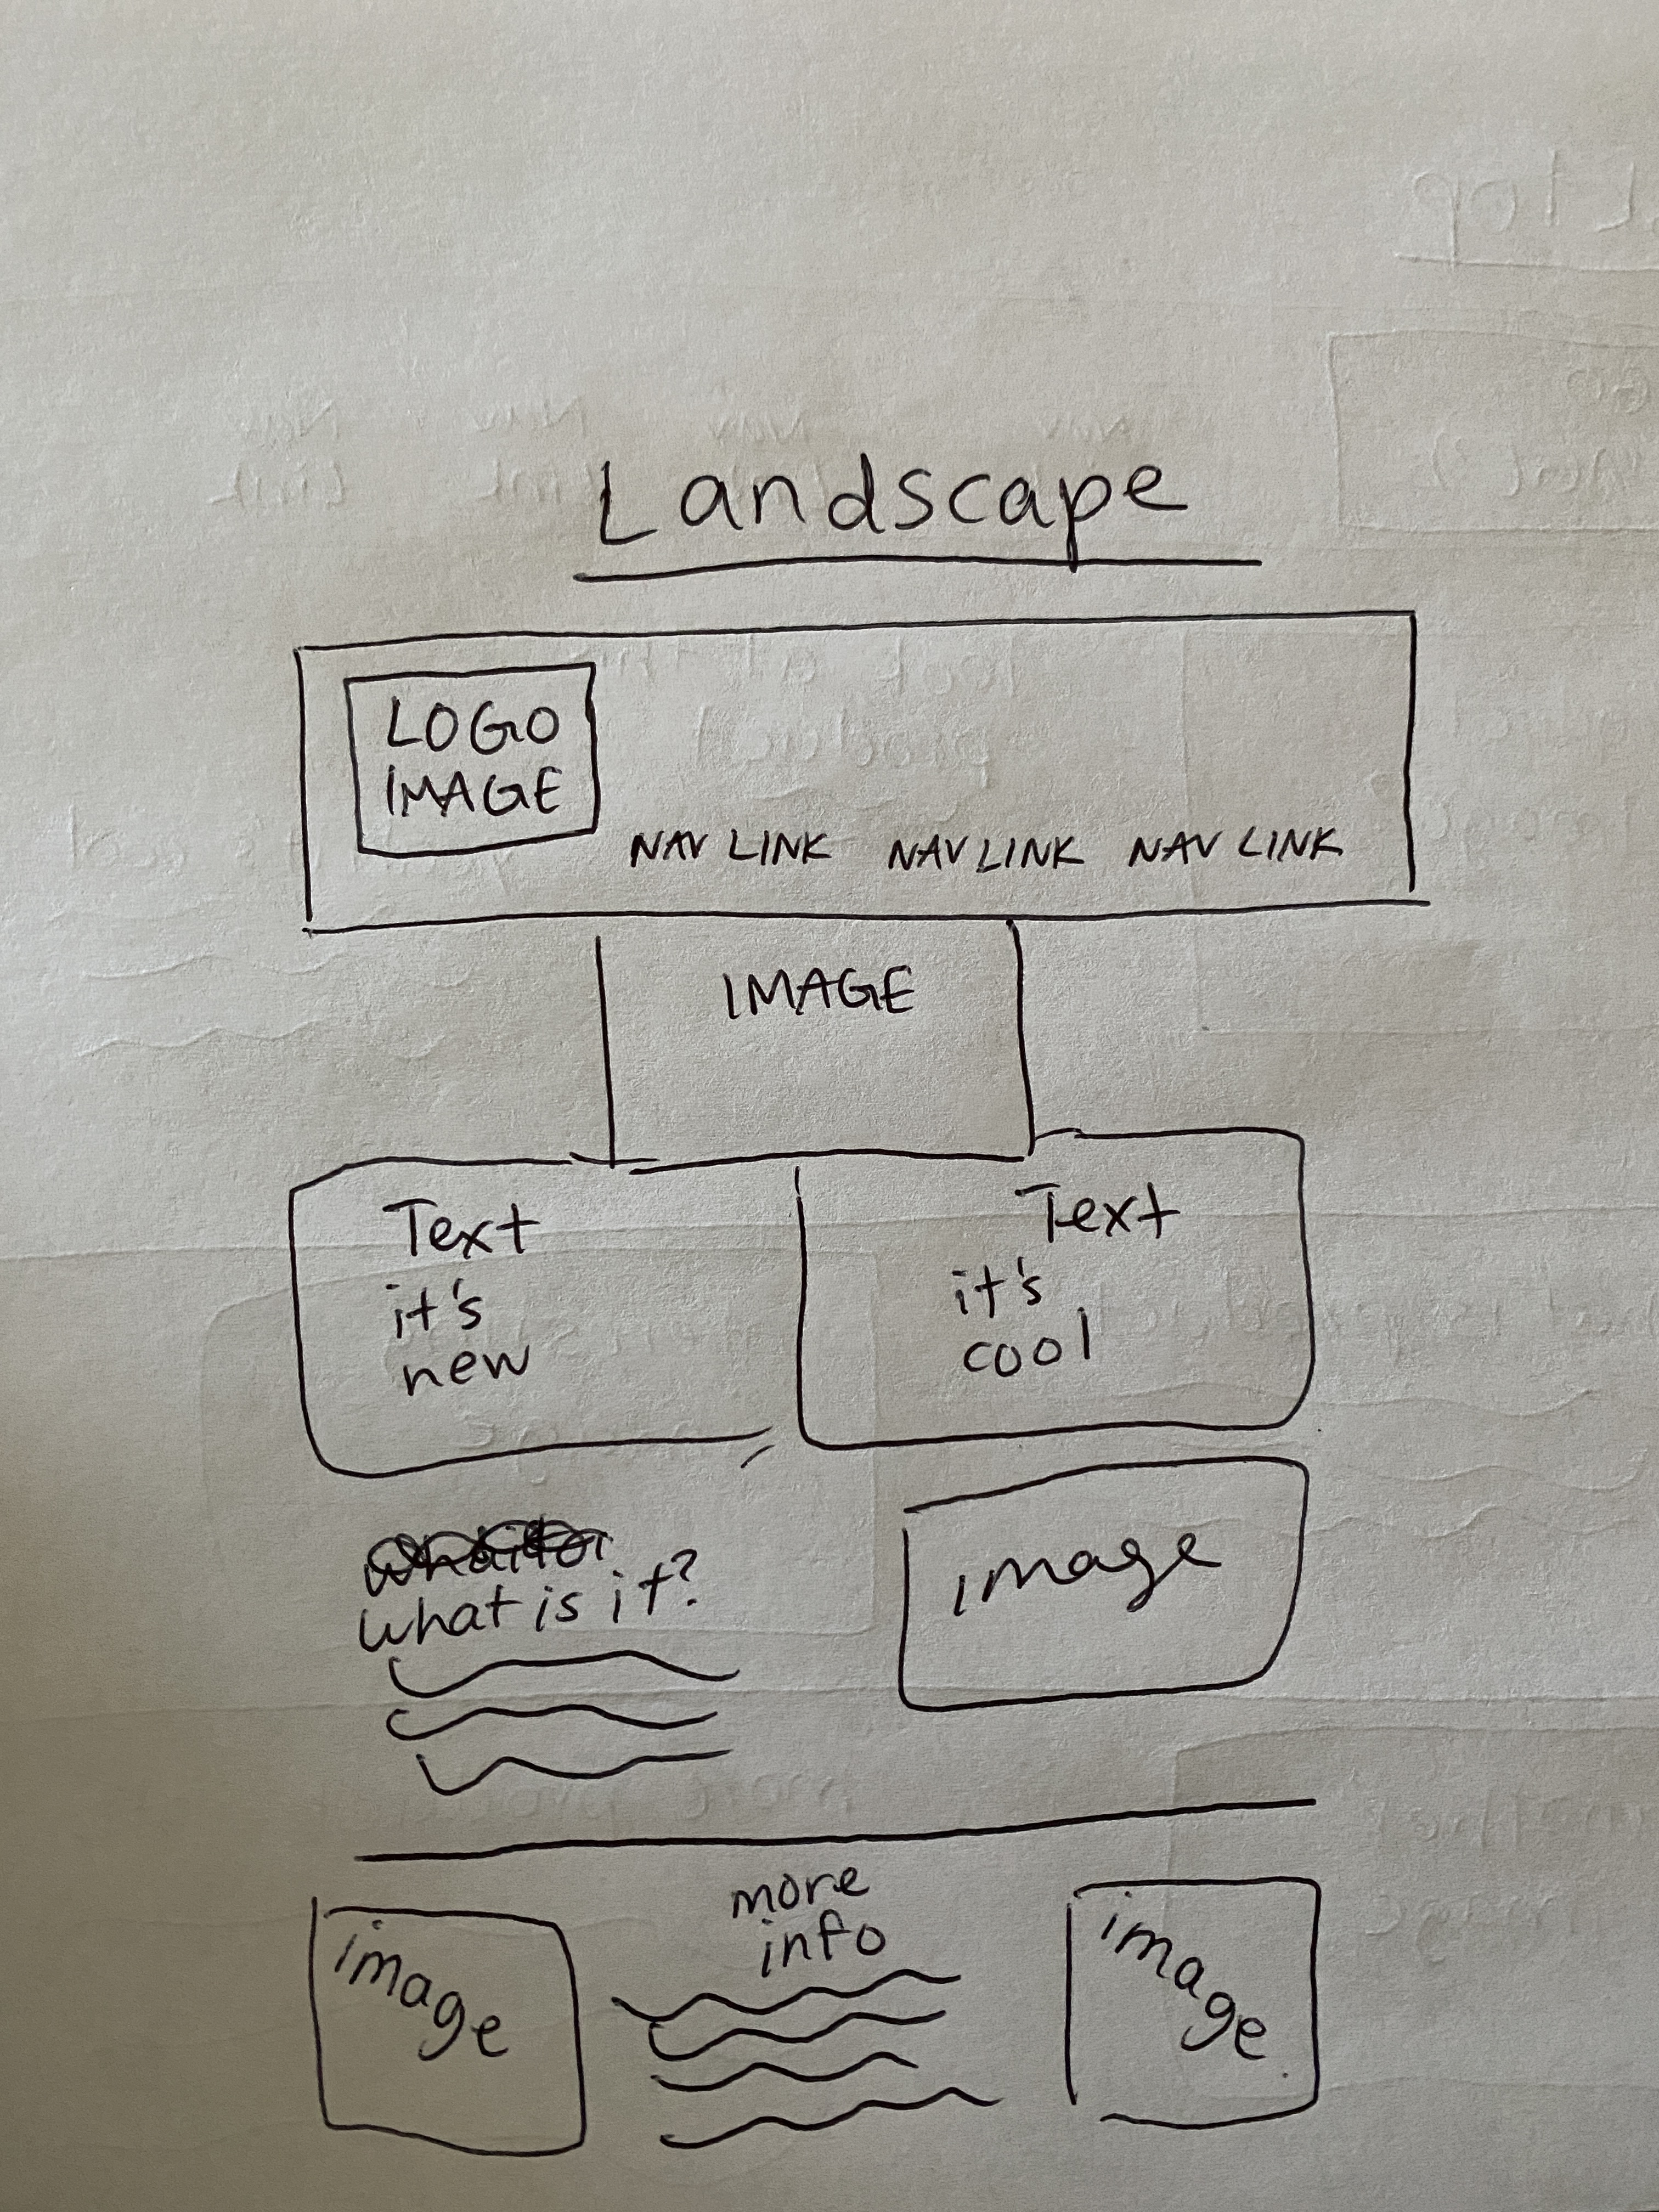 Landscape
LOGO
IMAGE
NAV LINK NAV LINK NAV LINK
IMAGE
Text
it's
new
Text
it's
cool
what is it?
image
more
info
image
image